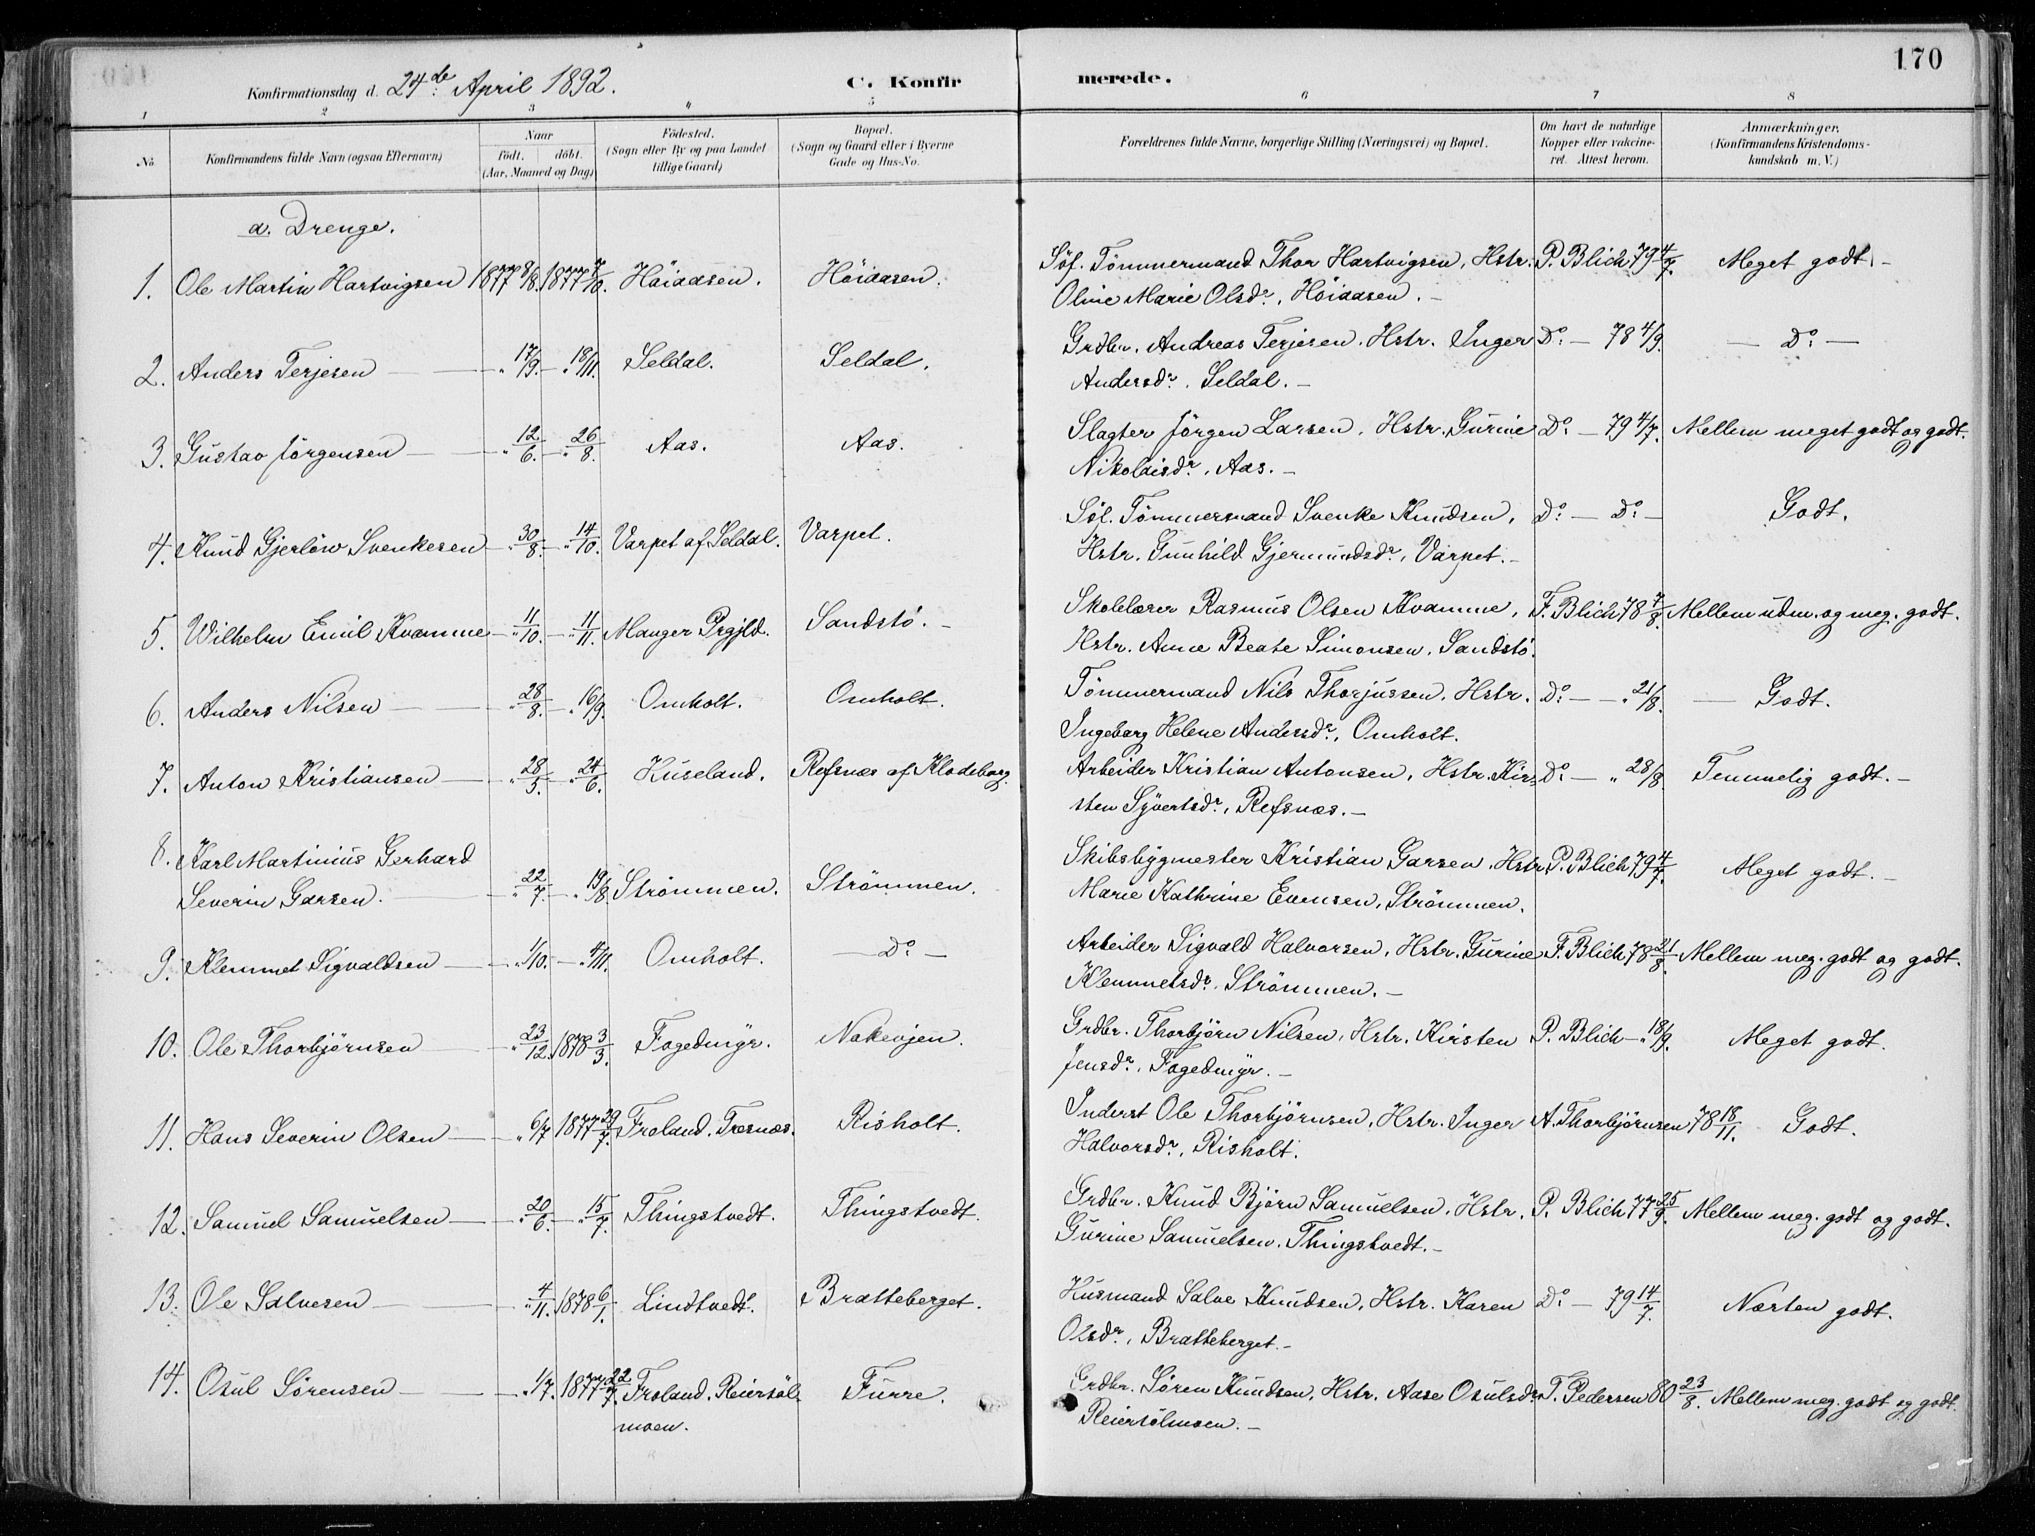 170
Konfirmationsdag d. 24de April 1892.
C. Konfirmerede.
1 2 3 4 5 6 7 8
No
Konfirmandens fulde Navn (ogsaa Efternavn)
Naar
födt. döbt.
(Aar, Maaned og Dag)
Födested.
(Sogn eller By og paa Landet
tillige Gaard)
Bopæl.
(Sogn og Gaard eller i Byerne
Gade og Hus-No.
Forældrenes fulde Navne, borgerlige Stilling (Næringsvei) og Bopæl.
Om havt de naturlige
Kopper eller vakcine-
ret. Attest herom.
Anmærkninger.
(Konfirmandens Kristendoms-
kundskab m. V.)
a. Drenge.
1. Ole Martin Hartvigsen 1877 8/8. 1877 7/10. Höiaasen. Höiaasen. Söf. Tömmermand Thor Hartvigsen, Hstr. P. Blich 79 4/7. Meget godt. –
Oline Marie Olsdr, Höiaasen. –
2. Anders Terjesen — " 17/9. — " 18/11. Seldal. Seldal. Grdbr. Andreas Terjesen. Hstr. Inger Do. — 78 4/9. — Do. —
Andersdr. Seldal. –
3. Gustav Jörgensen — " 12/6. — " 26/8. Aas. Aas. Slagter Jörgen Larsen, Hstr. Gurine Do. — 79 4/7. Mellem meget godt og godt.
Nikolaisdr, Aas. –
4. Knud Gjerlöw Svenkesen — " 30/8. — " 14/10. Varpet af Seldal. Varpet. Söf. Tömmermand Svenke Knudsen, Do. — Do. — Godt.
Hstr. Gunhild Gjermundsdr, Varpet. –
5. Wilhelm Emil Kvamme — " 11/10. — " 11/11. Manger Prgjld. Sandstö. – Skolelærer Rasmus Olsen Kvamme, F. Blich 78 7/8. Mellem udm. og meg. godt.
Hstr. Anne Beate Simonsen, Sandstö.
6. Anders Nilsen — " 28/8. — " 16/9. Omholt. Omholt. Tömmermand Nils Thorjussen, Hstr. Do. — " 21/8. — Godt.
Ingeborg Helene Andersdr, Omholt.
7. Anton Kristiansen — " 28/5. — " 24/6. Huseland. Refsnæs af Klodeborg. Arbeider Kristian Antonsen, Hstr. Kir- Do. — " 28/8. Temmelig godt. –
sten Syvertsdr, Refsnæs. –
8. Karl Martinius Gerhard
Severin Garsen. — " 22/7. — " 19/8 Strömmen. Strömmen. Skibsbygmester Kristian Garsen, Hstr. P. Blich 79 4/7. Meget godt. –
Marie Kathrine Evensen, Strömmen.
9. Klemmet Sigvaldsen — " 1/10. — " 4/11. Omholt. — Do — Arbeider Sigvald Halvorsen, Hstr. Gurine F. Blich 78 21/8. Mellem meg. godt og godt.
Klemmetsdr. Strömmen. –
10. Ole Thorbjörnsen — " 23/12. 1878 3/3. Fogedmyr. Nakevjen. Grdbr. Thorbjörn Nilsen, Hstr. Kirsten P. Blich — " 18/9. Meget godt.
Jensdr, Fogedmyr. –
11. Hans Severin Olsen — " 6/7 1877 29/7. Froland. Tresnæs. Risholt. Inderst Ole Thorbjörnsen, Hstr. Inger A. Thorbjörnsen 78 18/11. Godt.
Halvorsdr, Risholt.
12. Samuel Samuelsen — " 20/6. — " 15/7. Thingstvedt. Thingstvedt. Grdbr. Knud Björn Samuelsen, Hstr. P. Blich 77 25/9. Mellem meg. godt og godt.
Gurine Samuelsen. Thingstvedt. –
13. Ole Salvesen — " 4/11. 1878 6/1. Lindtvedt. Bratteberget. Husmand Salve Knudsen, Hstr. Karen Do. — 79 14/7. Næsten godt.
Olsdr, Bratteberget. –
14. Osul Sörensen — " 1/7. 1877 22/7. Froland. Reiersöl- Furre. Grdbr. Sören Knudsen, Hstr. Aase Osulsdr. T. Pedersen 80 23/8. Mellem meg. godt og godt.
moen. Reiersölmoen. –